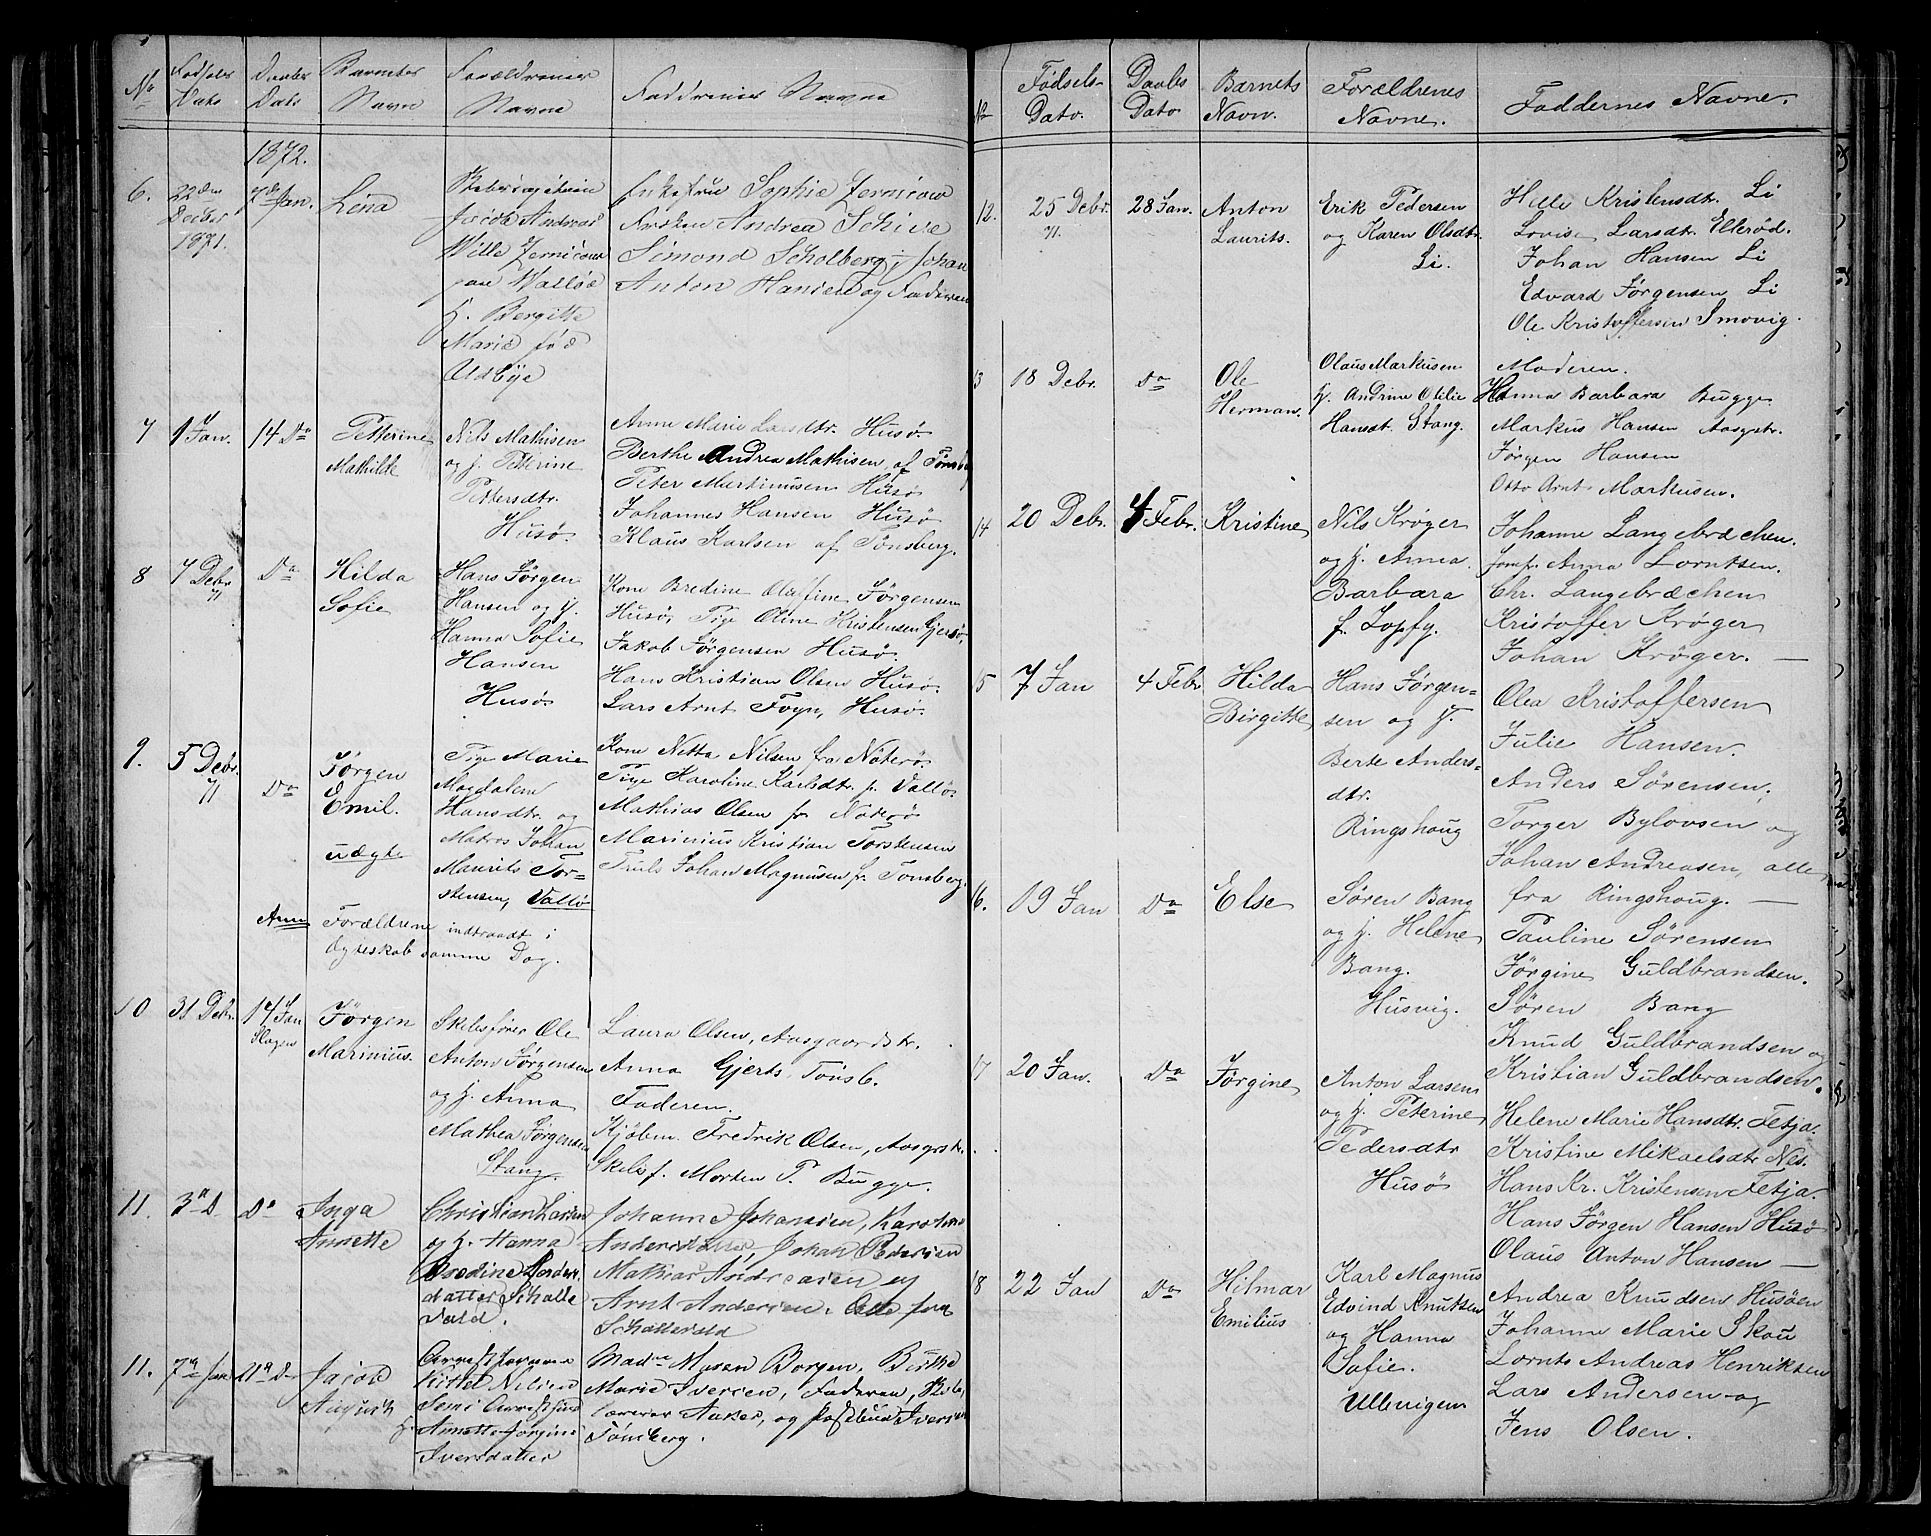 No
Fødsels
Dato
Daabs
Dato
Barnets
Navn
Forældrenes
Navne
Faddernes Navne
1872.
6.
22den
Decbr
1871.
7de Jan.
Lena
Jacob Andreas
Wille
paa Valløe
H. Bergitte
Marie fød
Enkefrue Sophie
Frøken Andrea Schive
Simond Scholberg, Johan
Anton Hansen og Faderen
7
1 Jan.
14 Do
Petterine
Mathilde
Nils Mathisen
og H. Petterine
Pettersdtr.
Husø.
Anne Marie Larsdtr. Husø.
Berthe Andrea Mathisen, af Tønsberg
Peter Martinusen Husø
Johannes Hansen Husø
Klaus Karlsen af Tønsberg.
8
7 Debr
71
Do
Hilda
Sofie
Hans Jørgen
Hansen og H.
Hanna Sofie
Hansen
Husø
Kone Bredine Olaffine Jørgensen
Husø, Pige Oline Kristensen Gjersø,
Jakob Jørgensen Husø
Hans Kristian Olsen Husø.
Lars Arnt Foyn, Husø.
9.
5 Debr.
71
Do
Jørgen
Emil.
uægte
Pige Marie
Magdalene
Hansdtr. og
Matros Johan
Maurits Tor-
stensen, Vallø
Kone Netta Nilsen fra Nøterø.
Pige Karoline Karlsdtr. fr. Vallø.
Mathias Olsen fr. Nøterø
Marinius Kristian Torstensen
Truls Johan Magnusen fr. Tønsberg.
Anm
Forældrene indtraadt i
Ægteskab samme Dag.
10
31 Debr.
14 Jan
Slagen
Jørgen
Marinius.
Skibsfører Ole
Anton Jørgensen
og H. Anna
Mathea Jørgensen
Stang.
Laura Olsen, Aasgaardstr.
Anna Gjerts. Tønsb.
Faderen.
Kjøbm. Fredrik Olsen, Aasgrstr.
Skibsf. Morten P. Bugge.
11.
3die D
Do
Inga
Annette
Christian Larsen
og H. Hanna
Bredine
datter
Johanne Johansen, Karstine
Andersdatter, Johan Pedersen
Mathias Andreasen og
Arnt Andersen. Alle fra
11.
7de Jan
21de Do
Jacob
August
Nilsen
H. Annette Jørgine
Iversdatter
Madme Maren Borgen, Birthe
Marie Iversen, Faderen,
og Iversen
Tønsberg.
No
Fødsels-
Dato.
Daabs
Dato
Barnets
Navn.
Forældrenes
Navne.
Faddernes Navne.
12.
25 Debr.
71.
28 Jan.
Anton
Laurits.
Erik Pedersen
og Karen Olsdtr.
Li.
Helle Kristensdtr. Li
Lovise Larsdtr. Ellerød.
Johan Hansen Li
Edvard Jørgensen Li
Ole Kristoffersen Smovig.
13
18 Debr.
Do
Ole
Herman.
Olaus Markusen
H. Andrine Otilie
Hansdt. Stang.
Moderen.
Hanna Barbara Bugge.
Markus Hansen Aasgstr.
Jørgen Hansen
Otto Arnt Markusen.
14
20 Debr.
4 Febr.
Kristine
Nils Krøger
og H. Anna
Barbara
f. Zopfy.
Johanne Langebræchen.
Jomf. Anna Lorntsen.
Chr. Langebræchen
Kristoffer Krøger
Johan Krøger. —
15
7 Jan
4 Febr
Hilda
Birgitte
Hans Jørgen-
sen og H.
Berte Anders-
dtr.
Ringshoug
Olea Kristoffersen
Julie Hansen.
Anders Sørensen,
Torger Bylovsen og
Johan Andreasen, alle
fra Ringshoug. —
16.
19 Jan
Do
Else
Søren Bang
og H. Helene
Bang.
Husvig.
Pauline Sørensen
Jørgine Guldbrandsen.
Søren Bang
Knud Guldbrandsen og
Kristian Guldbrandsen.
17
20 Jan.
Do
Jørgine
Anton Larsen
og H. Peterine
Pedersdtr
Husø
Helene Marie Hansdtr. Fetja.
Kristine Mikaelsdtr. Nes.
Hans Kr. Kristensen Fetja.
Hans Jørgen Hansen Husø
Olaus Anton Hansen —
18
22 Jan
Do
Hilmar
Emilius
Karl Magnus
Edvind Knutsen
og Hanna
Sofie.
Ullevigen
Andrea Knudsen Husøen
Johanne Marie Skou
Lornts Andreas Henriksen
Lars Andersen og
Jens Olsen.